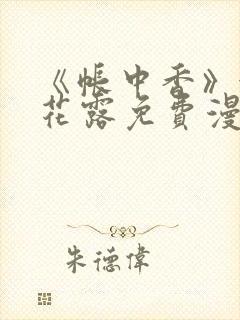 《帐中香》
花露免費漫
朱德偉